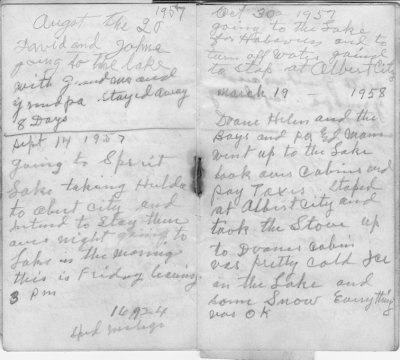 1957
August the 20
David and John
going to the lake
with grandma and
grandpa stayed away
8 Days
Sept 14 1957
going to Spirit
Lake taking Hulda
to Albert City and
intend to stay there
over night going to
Lake in the morning
this is Friday leaving
3 pm
16924
Spid
Oct 30 - 1957
going to the Lake
for Halloween and to
turn off Water going
to stop at Albert City
March 19 - 1958
Doane Helen and the
Boys and Pa Ed Mam
went up to the Lake
look over Cabins and
Pay Taxes staped
at Albert City and
took the Stove up
to Doanes Cabin
was pretty cold Ice
on the Lake and
some Snow Everything
was OK